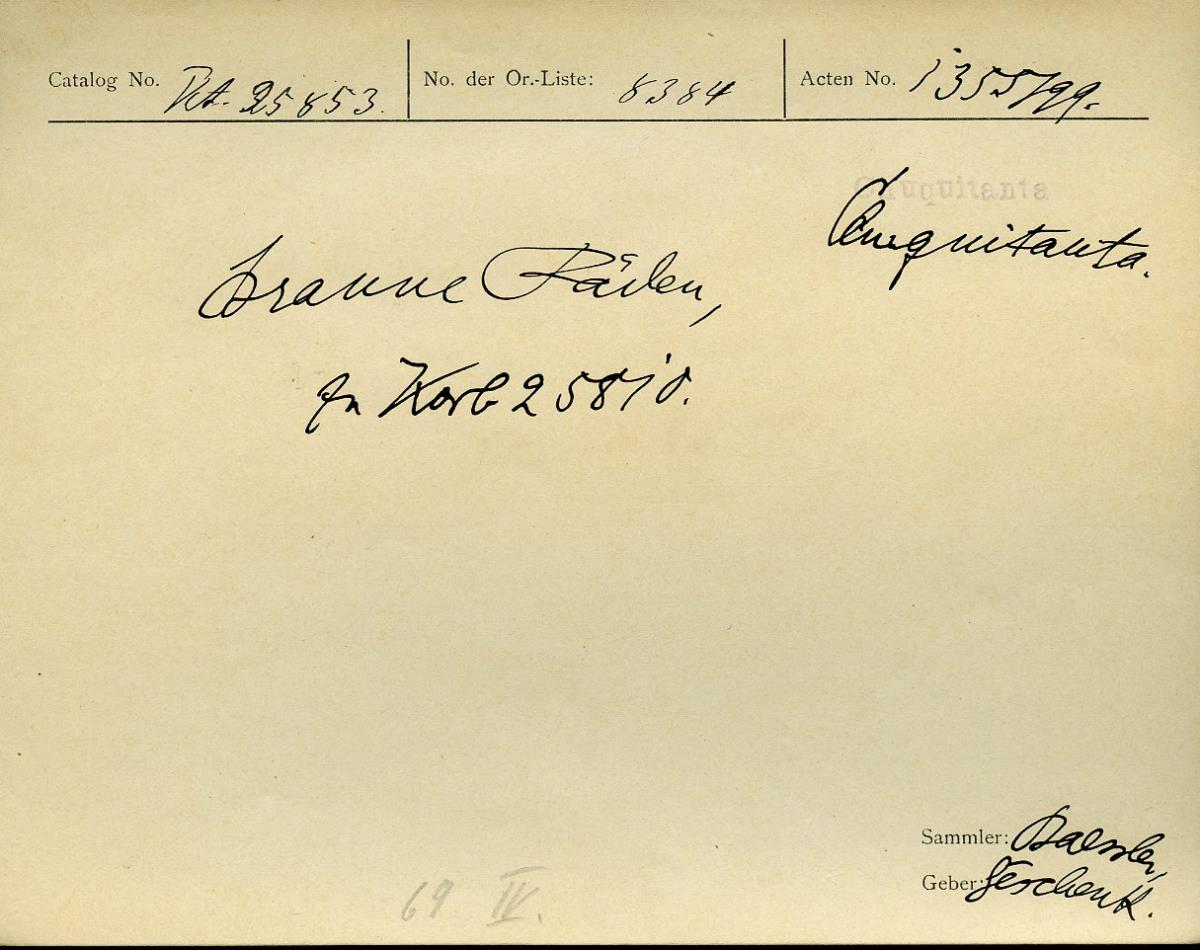 Catalog No. VA. 25853. No. der Or.-Liste: 8384 Acten No. 1355/99.
Chuquitanta
Chuquitanta.
braune Fäden,
zu Korb 25810.
Sammler: Baessler,
Geber: Geschenk.
69 IV.